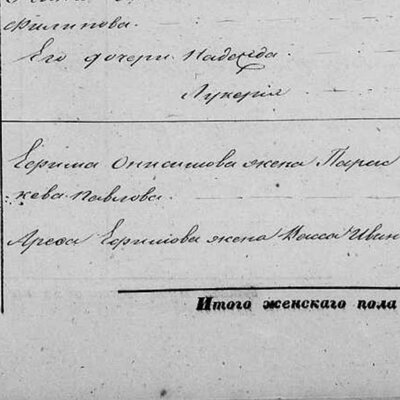 Филипова.
Его дочери Надежда.
Лукерія
Ефима Онисимова жена Парас
кева Павлова.
Ефимова жена Васса Иван
Итого женскаго пола